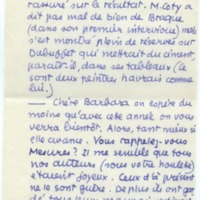 ramuré sur le résultat. M. Coty a
dit pas mal de bien de Braque
(dans son premier interview) mais
s'est montré plein de réserves sur
Dubuffet qui mettrait du ciment,
paraît-il, dans ses tableaux (ce
sont deux peintres havrais comme
lui.)
— Chère Barbara on espère du
moins qu'avec cette année on vous
verra bientôt. Alors, tant mieux si
elle avance. Vous rappelez-vous
Mesures ? Il me semble que tous
nos auteurs (sous votre houlette)
étaient joyeux. Ceux d'à présent
ne le sont guère. De plus ils ont